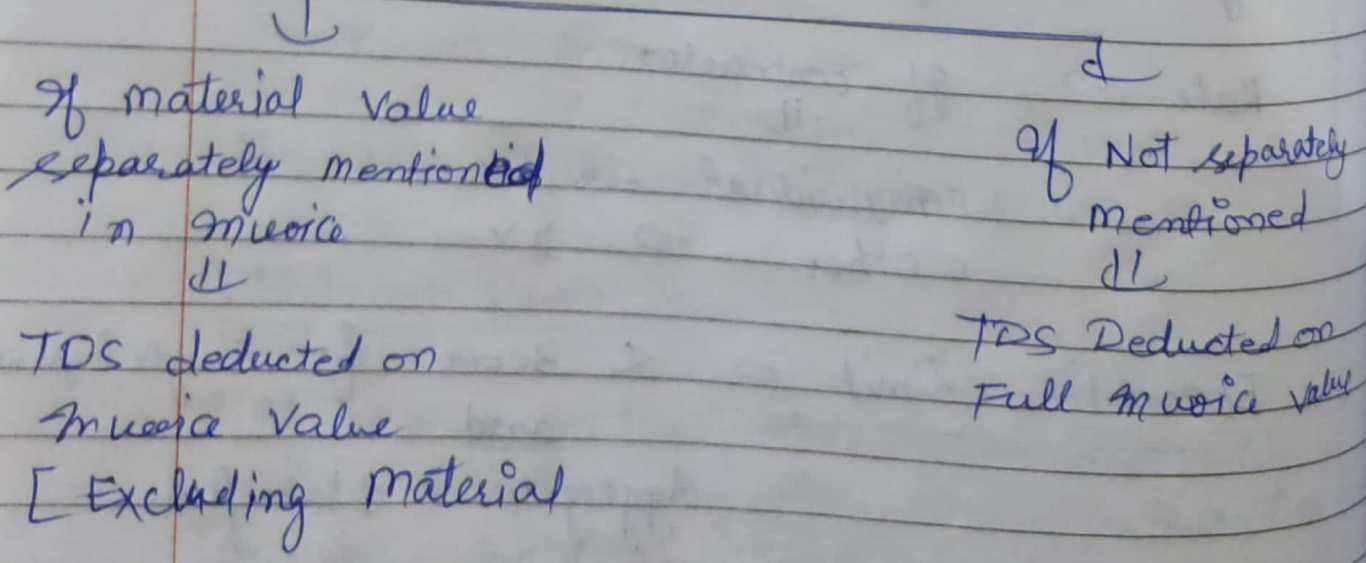 If material value
separately mentioned
in invoice
TDS deducted on
invoice value
[ Excluding material
If Not separately
mentioned
TDS Deducted on
Full invoice value